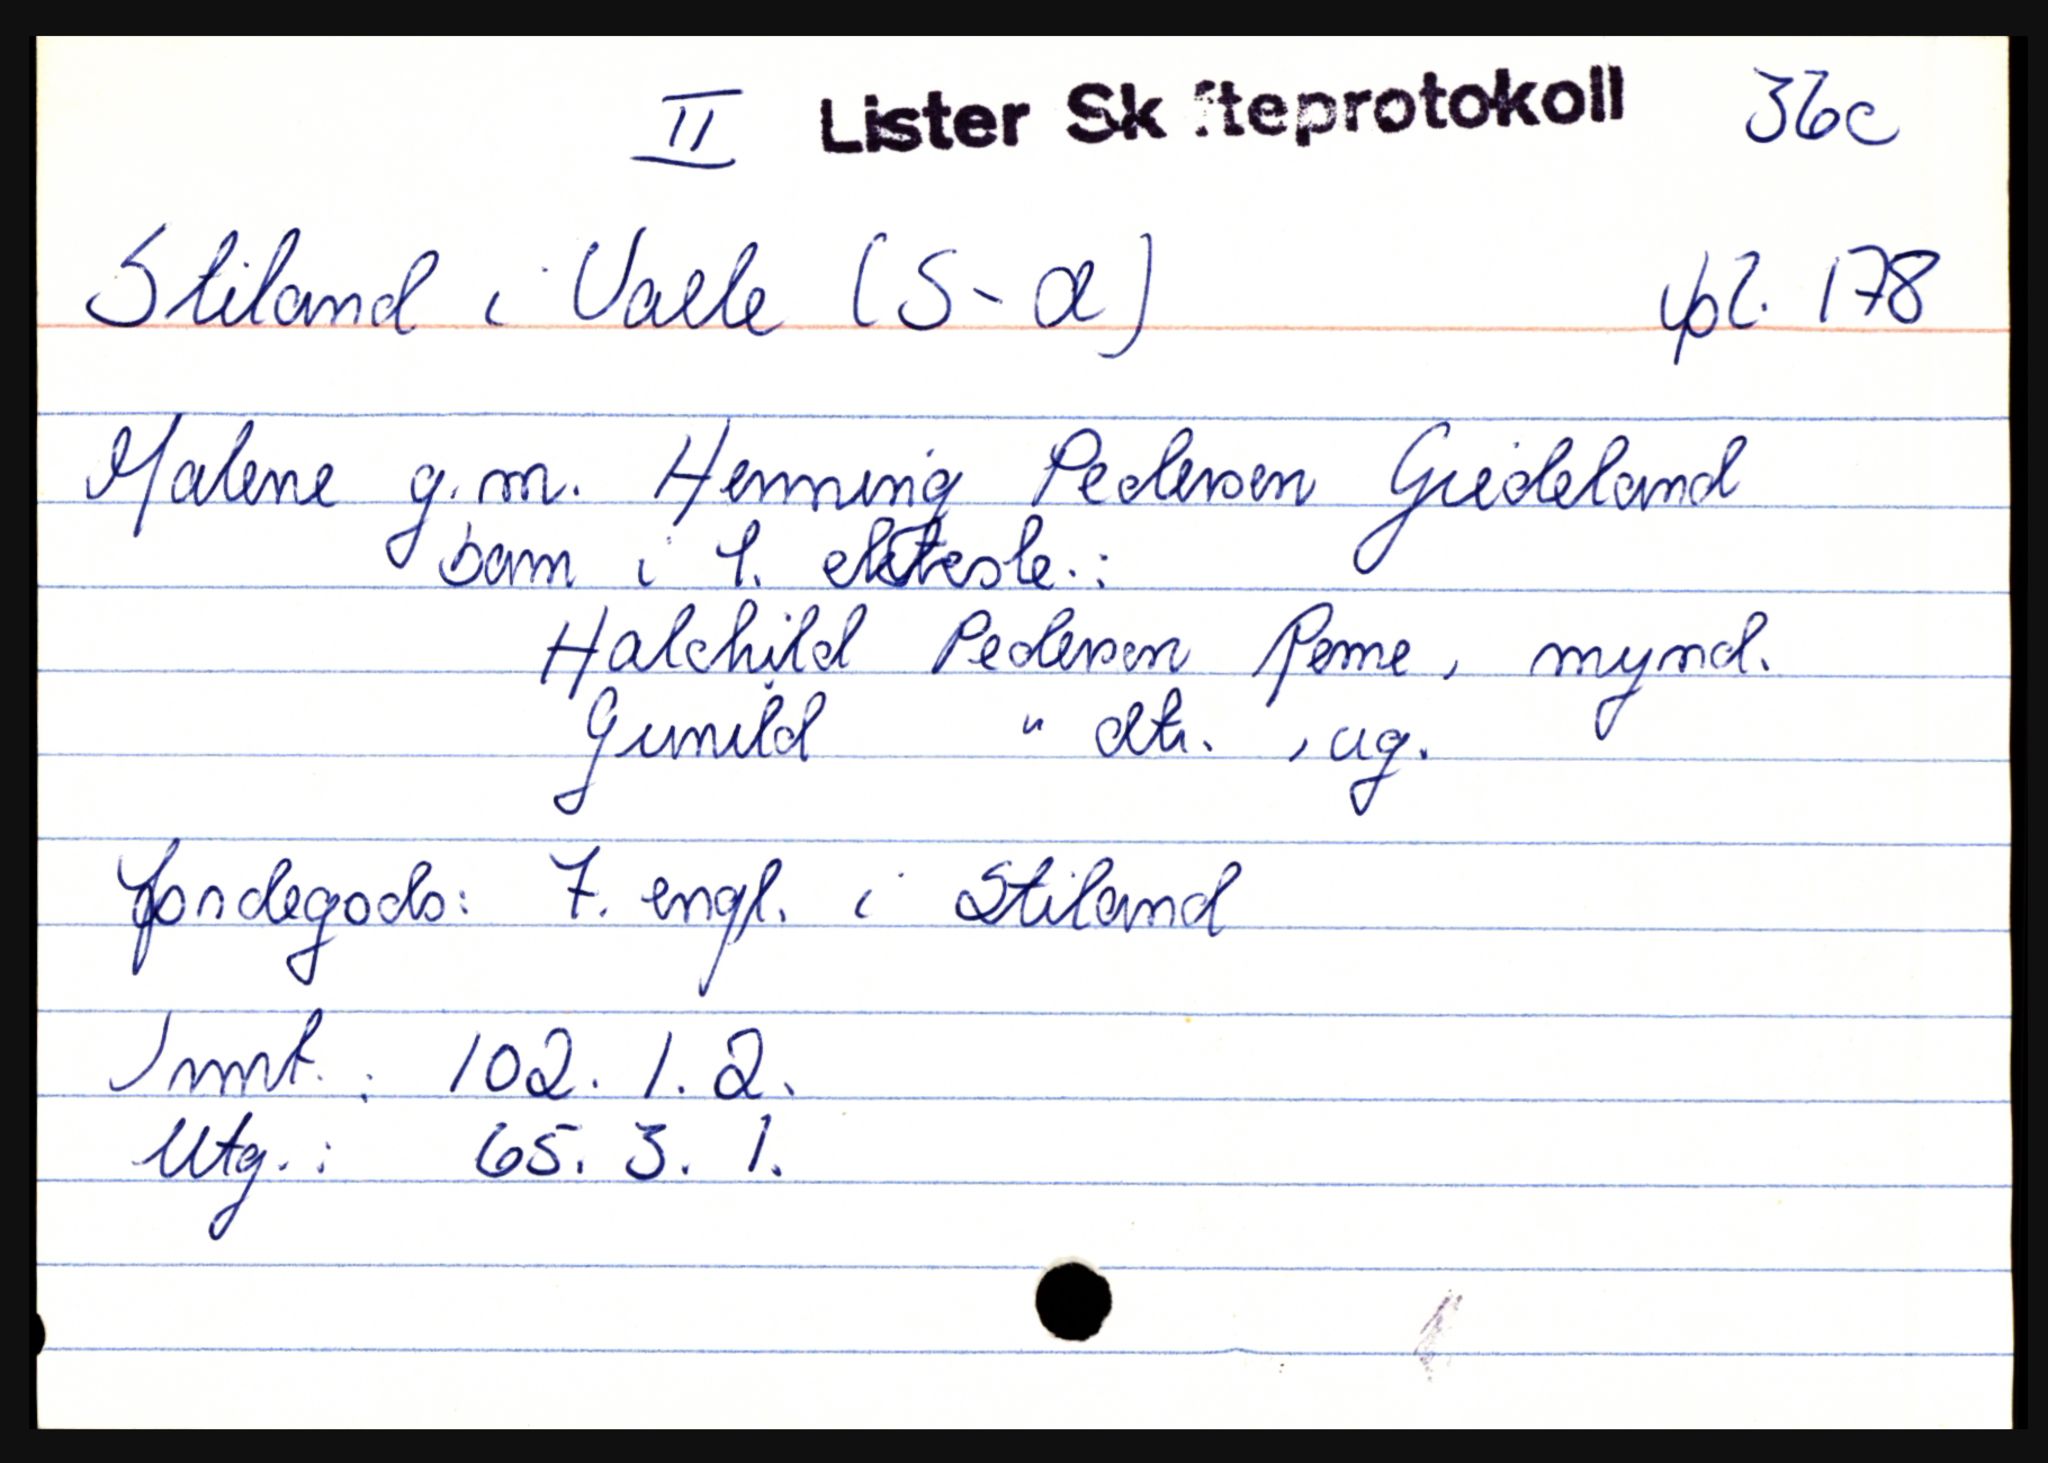 II Lister Skifteprotokoll 36c
Stiland i Valle (S-a) fol. 178
Malene g.m. Henning Pedersen Giedeland
barn i 1. ektesk.:
Halchild Pedersen Rome, mynd.
Gunild " dtr. , ug.
Jordegods: 7. engl. i Stiland
Innt.: 102. 1. 2.
Utg.: 65. 3. 1.